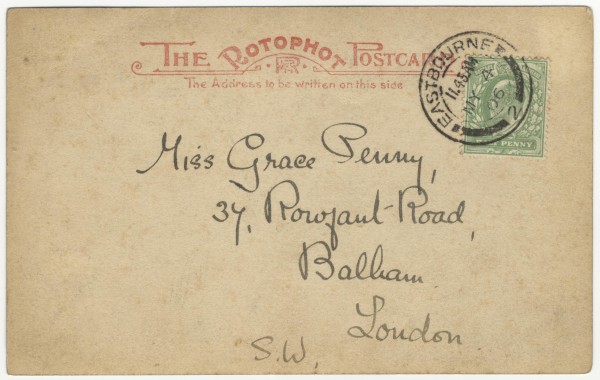 THE ROTOPHOT POSTCAR
The Address to be written on this side
EASTBOURNE
11.45 AM
MY
06
2
PENNY
Miss Grace Penny,
37, Rowfant Road,
Balham
London
S.W.